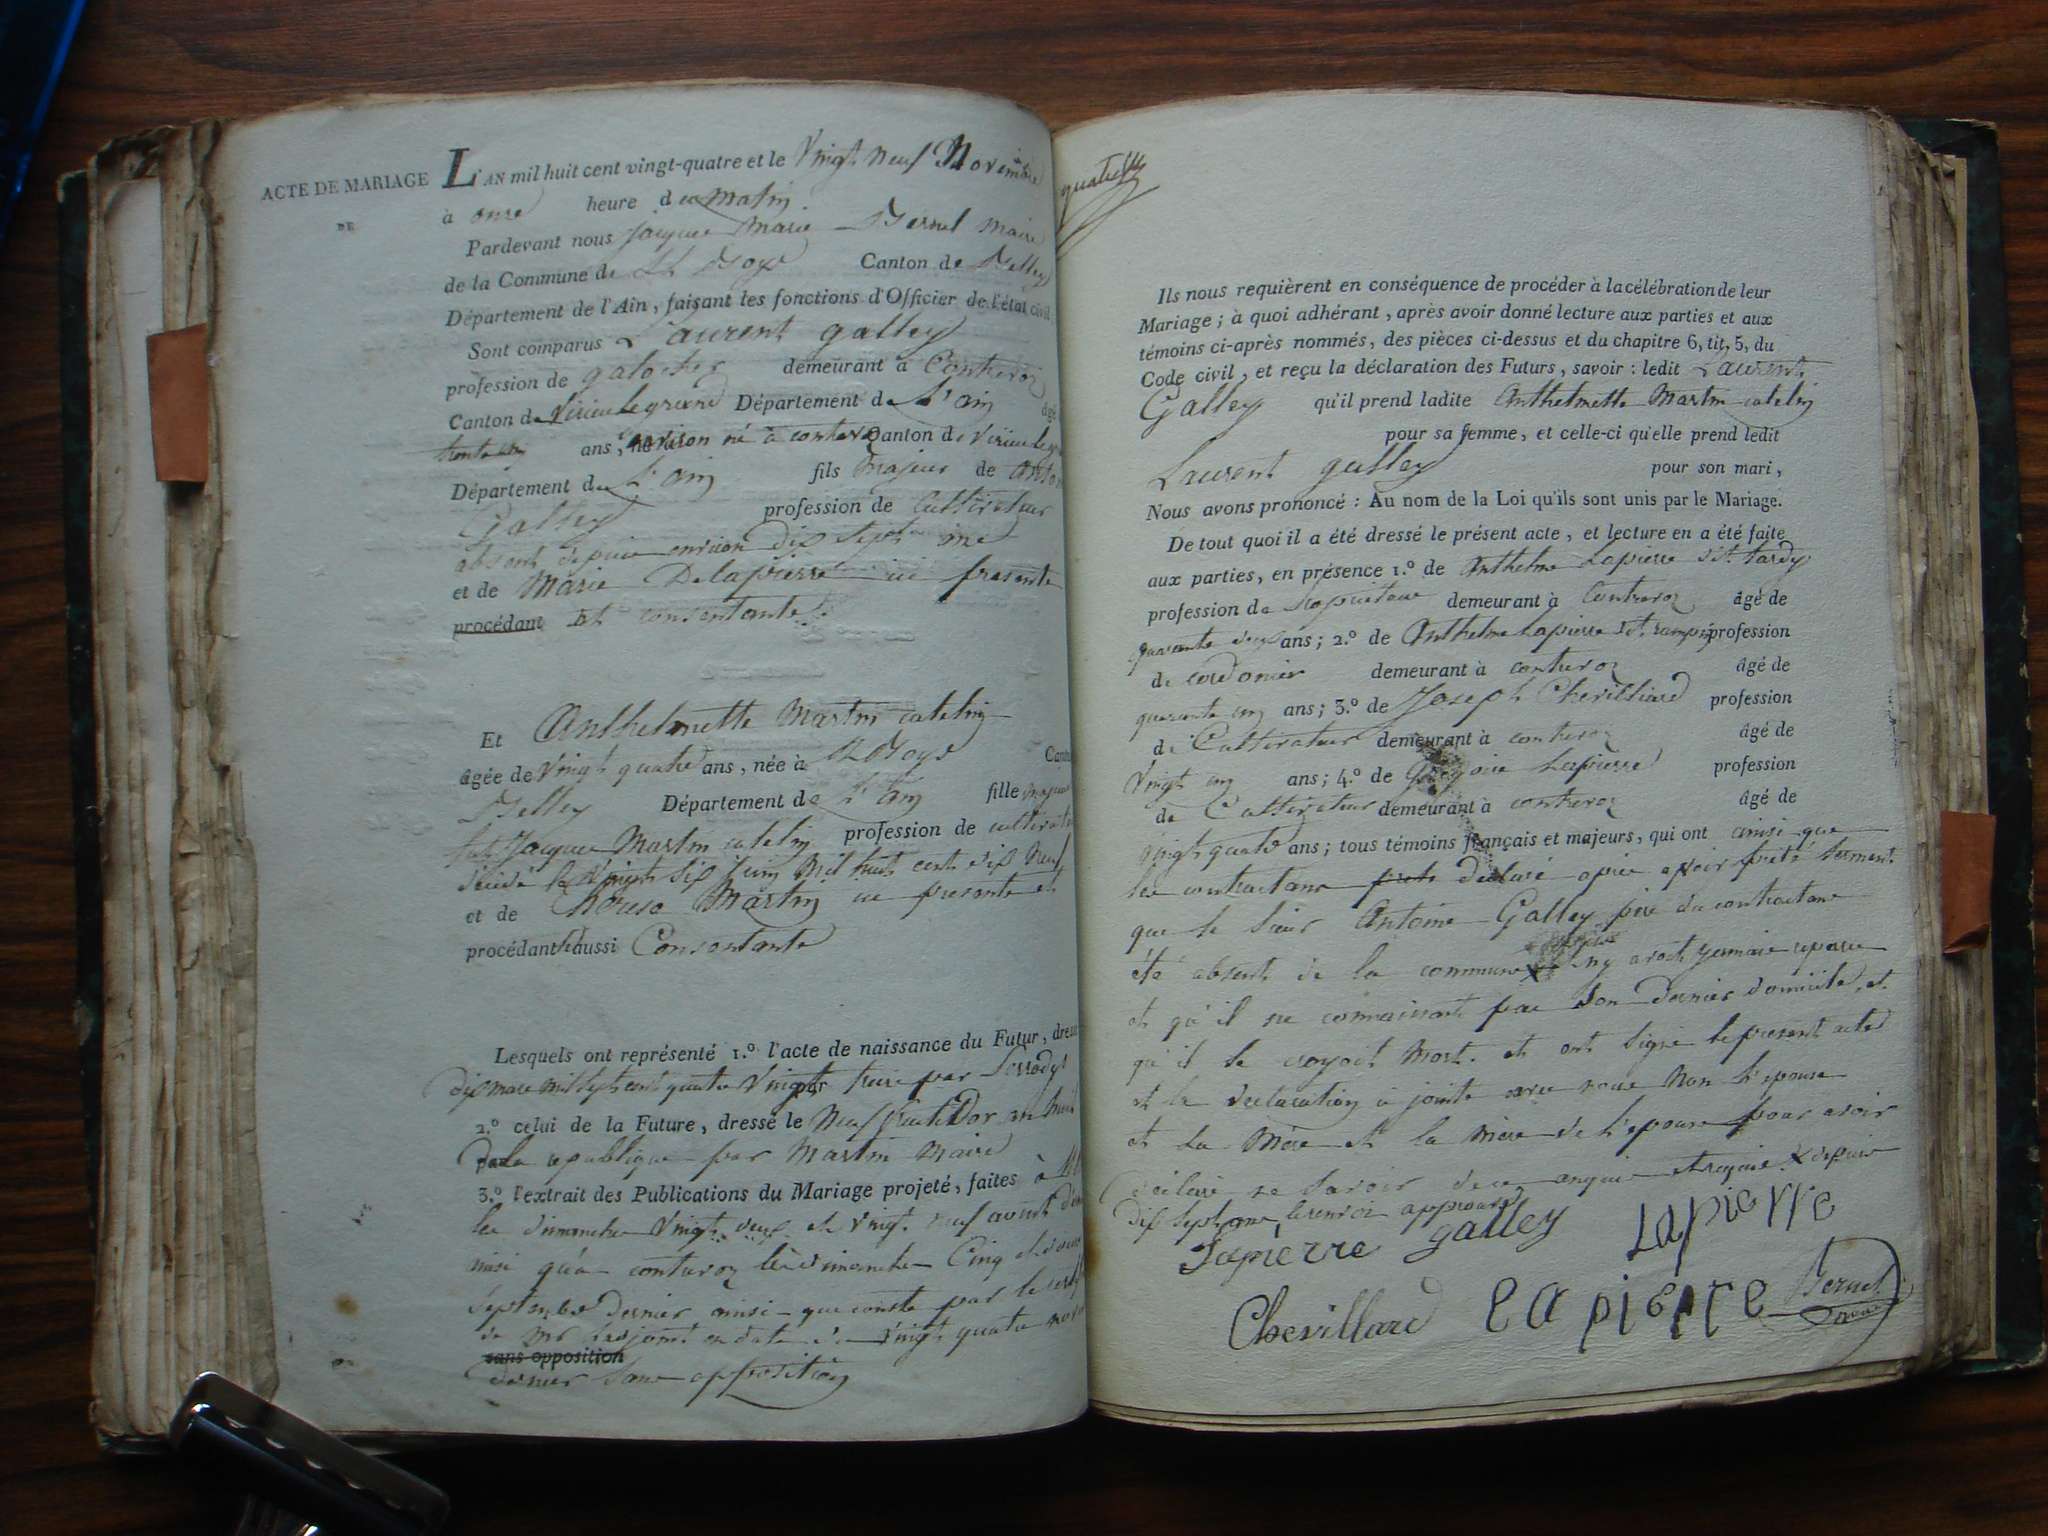 ACTE DE MARIAGE
DE
L'AN mil huit cent vingt-quatre et le Vingt neuf Novembre
à onze heure du matin
Pardevant nous jacques Marie Bernel maire
de la Commune de St Boys Canton de Belley
Département de l'Ain, faisant les fonctions d'Officier de l'état civil,
Sont comparus Laurent galley
profession de galocher demeurant à Contrevoz
Canton de Virieulegrand Département de L'ain âgé
ans, né à contrevoz Canton de virieulegr
Département de L'ain fils majeur de Anton
Galley profession de Cultivateur
absent depuis environ dix Sept ans
et de Marie Delapierre ici presente
procédant et consentante
Et Anthelmette Martin catelin
âgée de Vingt quatre ans, née à St Boys Canton
Belley Département de L'ain fille majeure
Jacques Martin catelin profession de cultivate
décédé le Vingt Six juin mil huit cent dix neuf
et de Martin ici presente et
procédant aussi Consentante
Lesquels ont représenté 1.º l'acte de naissance du Futur, dressé
dix mars mil sept cent quatre vingt treize par
2.º celui de la Future, dressé le Neuf fructidor an huit
de la republique par Martin Maire
3.º l'extrait des Publications du Mariage projeté, faites à
les dimanches vingt deux et vingt neuf août
ainsi qu'à contrevoz les dimanches Cinq et douze
Septembre dernier ainsi que conste par le certif
de Mr en date du vingt quatre nov
sans opposition
dernier Sans opposition
quatre
Ils nous requièrent en conséquence de procéder à la célébration de leur
Mariage; à quoi adhérant, après avoir donné lecture aux parties et aux
témoins ci-après nommés, des pièces ci-dessus et du chapitre 6, tit. 5, du
Code civil, et reçu la déclaration des Futurs, savoir: ledit Laurent
Galley qu'il prend ladite Anthelmette Martin catelin
pour sa femme, et celle-ci qu'elle prend ledit
Laurent galley pour son mari,
Nous avons prononcé: Au nom de la Loi qu'ils sont unis par le Mariage.
De tout quoi il a été dressé le présent acte, et lecture en a été faite
aux parties, en présence 1.º de Anthelme Lapierre dit tardy
profession de propriétaire demeurant à Contrevoz âgé de
quarante deux ans; 2.º de Anthelme Lapierre dit profession
de cordonier demeurant à contrevoz âgé de
quarante cinq ans; 3.º de Joseph Chevilliard profession
de Cultivateur demeurant à contrevoz âgé de
Vingt cinq ans; 4.º de Gregoire Lapierre profession
de Cultivateur demeurant à contrevoz âgé de
vingt quatre ans; tous témoins français et majeurs, qui ont ainsi que
les contractans declaré après avoir prété serment
que le Sieur Antoine Galley père du contractant
été absent de la commune
et qu'il ne connaissent pas Son dernier domicile, et
qu'il le croyoit Mort. et ont Signé le present acte
et la declaration ci jointe avec nous Non L'epouse
et La Mère et la mère de L'epouse pour avoir
déclaré ne Savoir de ce enquis et requis X depuis
dix Sept ans le renvoi approuvé
Lapierre galley Lapierre
Chevillard Lapierre Bernel
maire